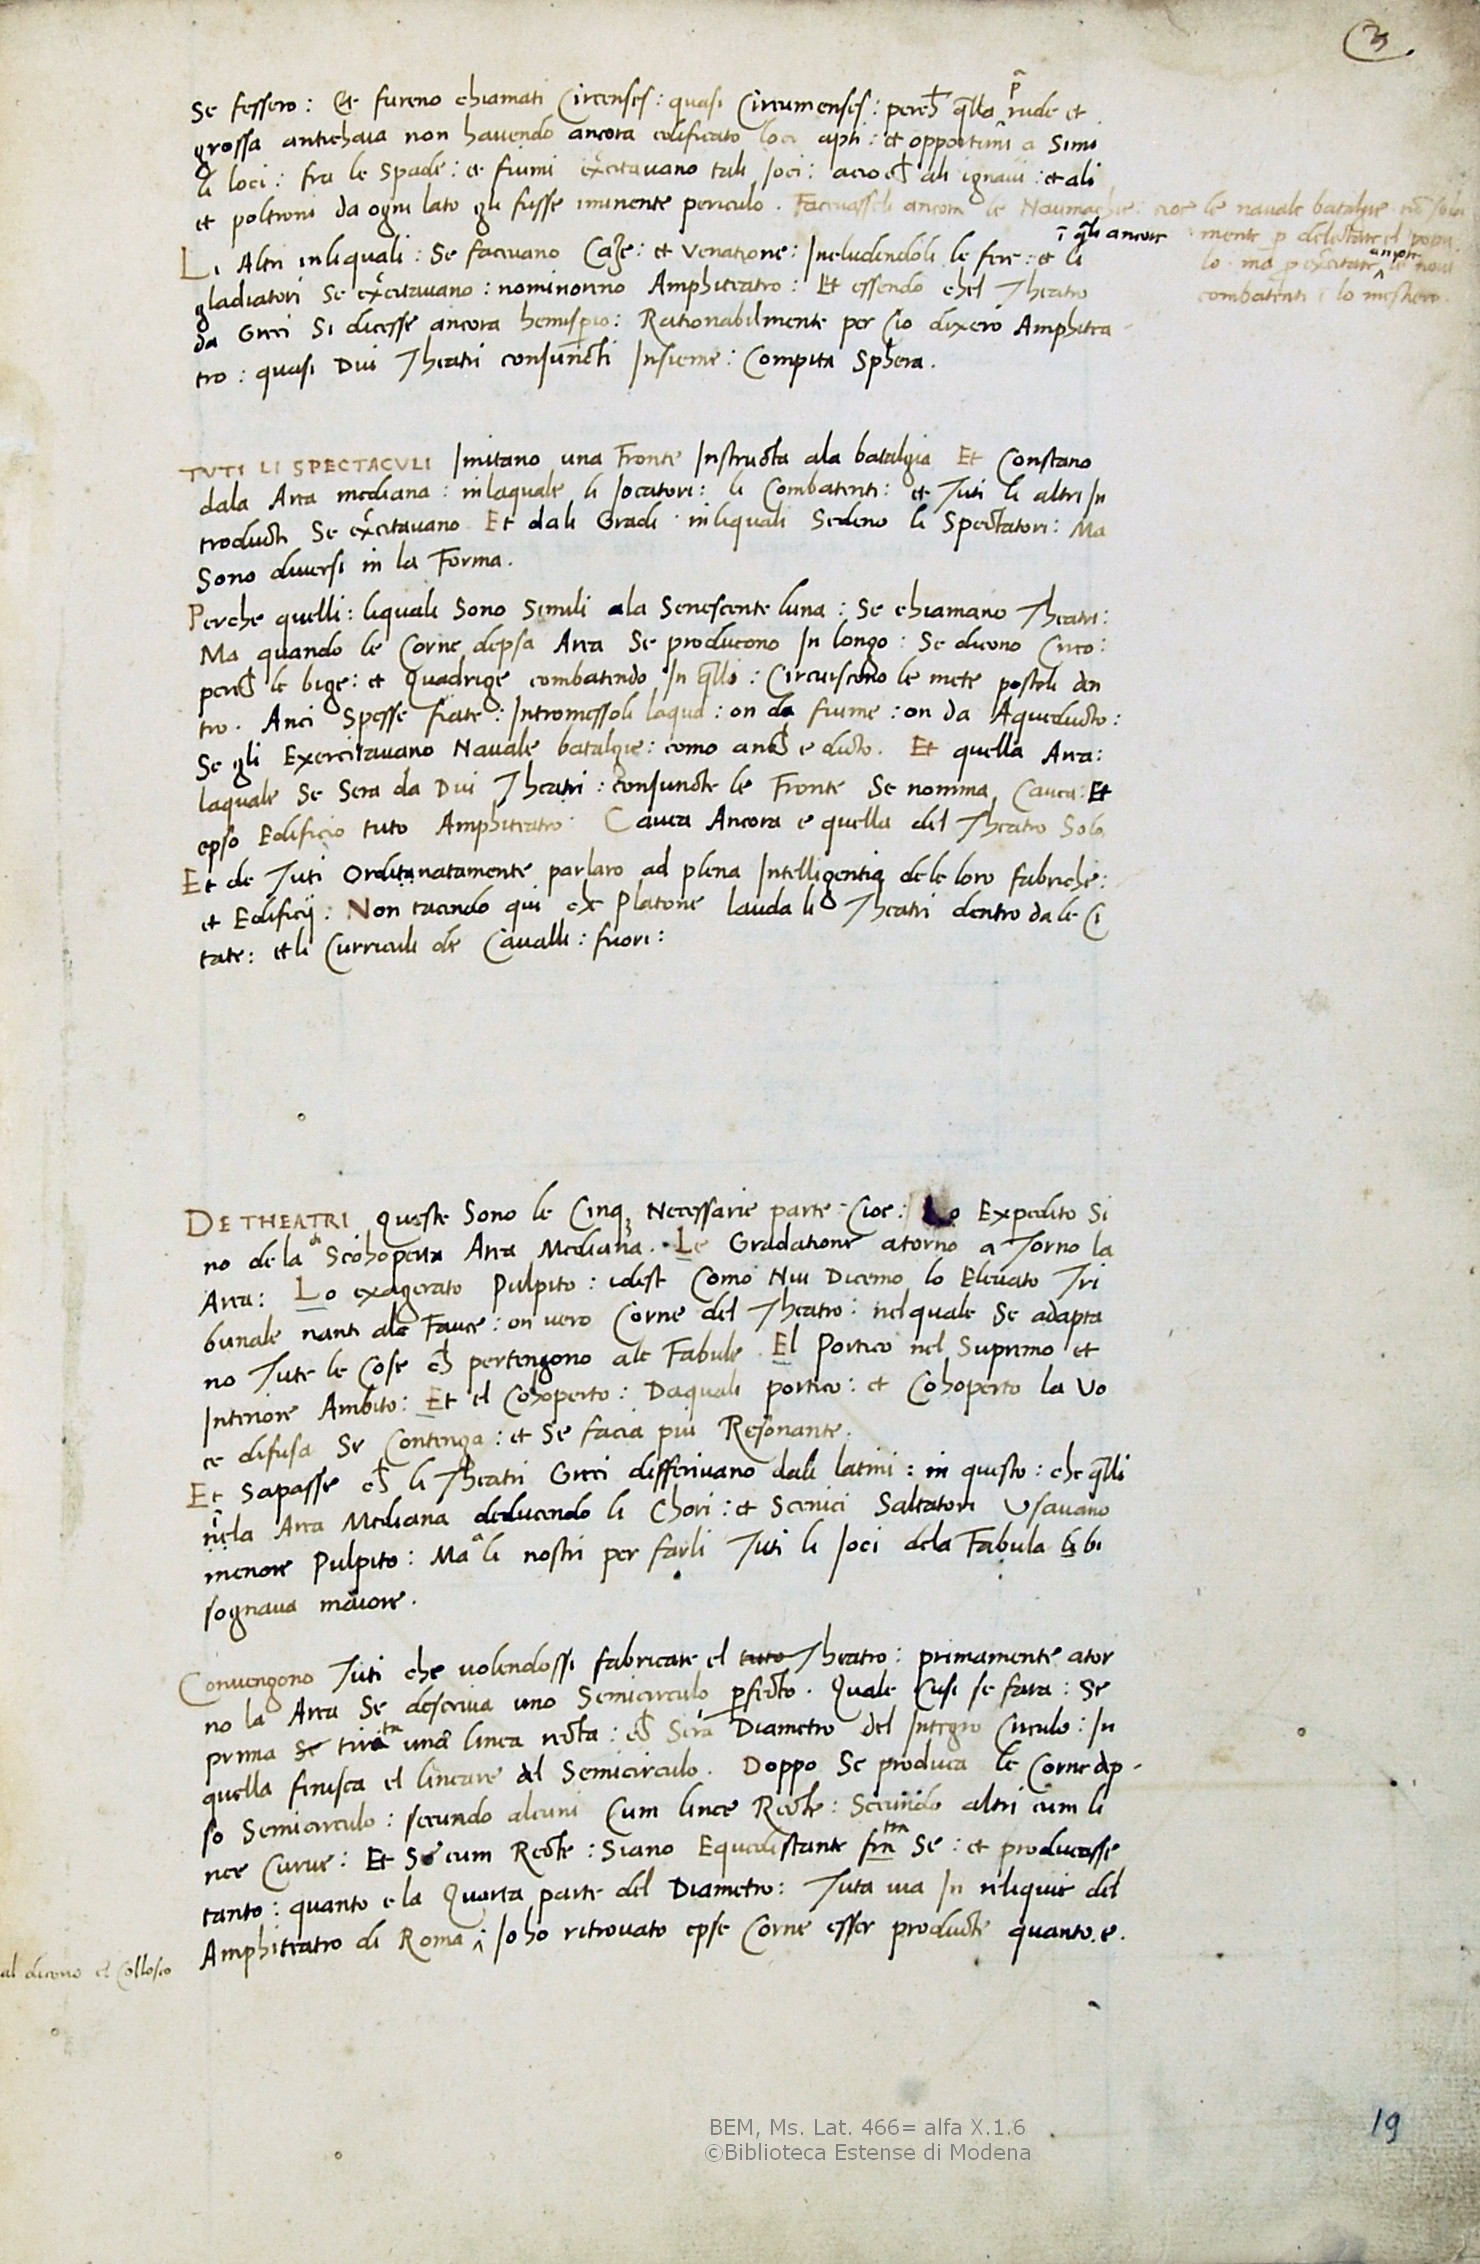 3
Se fessero: Et fureno chiamati Circenses: quasi Circumenses: perch̄ q̄lla p̄ rude et
grossa antichaia non havendo ancora edificato loci apti: et opportuni a Simi
li loci: fra le Spade: et fiumi excitavano tali Joci: acioch̄ ali ignavii: et ali
et poltroni da ogni lato gli fusse iminente periculo. Facivassoli ancora le Naumachie: cioe le navale batalgie
mente p delectare el popu
lo. ma p excitare ī q̄li ancore
combatenti ī lo mestiero.
Li Altri inliquali: Se facivano Caze: et Venatione: Includendoli le fere: et li
gladiatori Se excitavano: nominorno Amphiteatro: Et essendo chel Theatro
da Greci Si dicesse ancora hemisperio: Rationabilmente per Cio dixero Amphitea-
tro: quasi Dui Theatri conjuncti Insieme: Compita Sphera.
TUTI LI SPECTACULI Imitano una Fronte Instructa ala batalgia Et Constano
dala Area mediana: inlaquale li Jocatori: li Combatenti: et Tuti li altri In
troducti Se excitavano Et dali Gradi inliquali Sedeno li Spectatori: Ma
Sono diversi in la Forma.
Perche quelli: liquali Sono Simili ala Senescente luna: Se chiamano Theatri:
Ma quando le Corne depsa Area Se producono In longo: Se dicono Circo:
perch̄ le bige: et Quadrige combatendo In q̄llo: Circuiscono le mete postoli den
tro. Anci Spesse fiate: Intromessoli laqua: on da fiume: on da Aqueducto:
Se gli Exercitavano Navale batalgie: como anch̄ e dicto. Et quella Area:
laquale Se Sera da Dui Theatri: conjuncte le Fronte Se nomina Cavea: Et
epso Edificio tuto Amphiteatro Cavea Ancora e quella del Theatro Solo
Et de Tuti Orditanatamente parlaro ad plena Intelligentia dele loro fabriche:
et Edificij: Non tacendo qui che Platone lauda li Theatri dentro dale Ci
tate: et li Curriculi de Cavalli: fuori:
DE THEATRI Queste Sono le Cinq; Necessarie parte Cioe: Lo Expedito Si
no de la di Scohoperta Area Mediana. Le Gradatione atorno a Torno la
Area: Lo exagerato Pulpito: idest Como Nui Dicemo lo Elevato Tri
bunale nanti ale Fauce: on vero Corne del Theatro: nelquale Se adapta
no Tute le Cose ch̄ pertengono ale Fabule. El Portico nel Supremo et
Interiore Ambito: Et el Cohoperto: Daquali portico: et Cohoperto la Vo
ce difusa Se Contenga: et Se facia più Resonante.
Et Sapasse ch̄ li Theatri Greci differivano dali latini: in questo: che q̄lli
nela Area Mediana deducendo li Chori: et Scenici Saltatori Usavano
menore Pulpito: Ma a li nostri per farli Tuti li Joci dela Fabula li bi
sognava maiore.
Convengono Tuti che volendossi fabricare el tuto Theatro: primamente ator
no la Area Se descriva uno Semicirculo p̄fecto. Quale Cusi se fara: Se
prima Se tira una linea recta: ch̄ Sera Diametro del Integro Circulo: In
quella finisca el lineare del Semicirculo. Doppo Se produca le Corne dep-
so Semicirculo: secundo alcuni Cum linee Recte: Secundo altri cum li
nee Curve: Et Se cum Recte: Siano Equedistante fra Se: et producasse
tanto: quanto e la Quarta parte del Diametro: Tuta via In reliquie del
Amphiteatro di Roma: Jo ho ritrovato epse Corne esser producte quanto e.
al dicono el Colloseo
19
BEM, Ms. Lat. 466= alfa X.1.6
©Biblioteca Estense di Modena